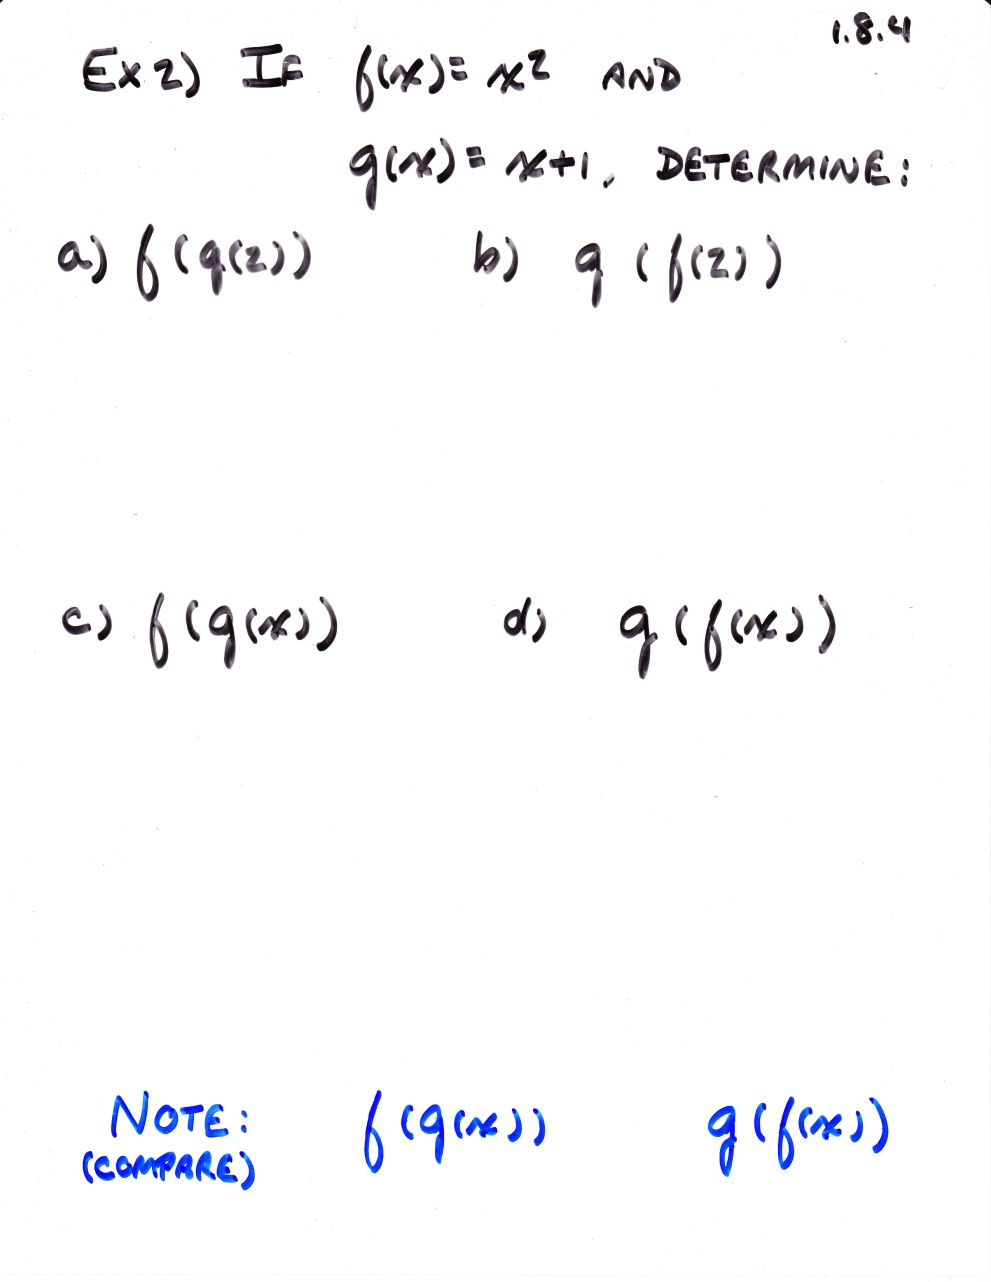 1.8.4
Ex 2) IF f(x) = x² AND
g(x) = x+1, DETERMINE:
a) f(g(2)) b) g(f(2))
c) f(g(x)) d) g(f(x))
NOTE: f(g(x)) g(f(x))
(COMPARE)